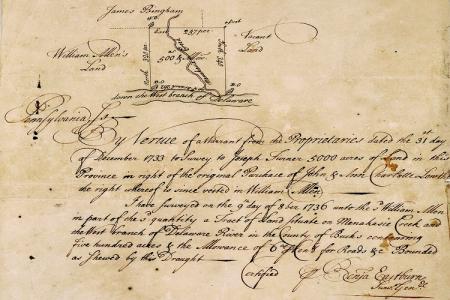 James Bingham
Vacant
Land
William Allen's
Land
500 & Allow.
down the West branch of Delaware
Pennsylvania, Ss.
By Vertue of a Warrant from the Proprietaries dated the 31st day
of December 1733 to Survey to Joseph Turner 5000 acres of Land in this
Province in right of the original Purchase of John & Ann Charlotte Lowth
the right whereof is since vested in William Allen
I have surveyed on the 9th day of 8ber 1736 unto the sd William Allen
in part of the sd quantity a Tract of Land situate on Manakasie Creek and
the West branch of Delaware River in the County of Bucks containing
five hundred acres & the Allowance of 6 pr Cent for Roads &c Bounded
as shewed by this Draught
Certified
P Benja Eastburn
Survr Genl